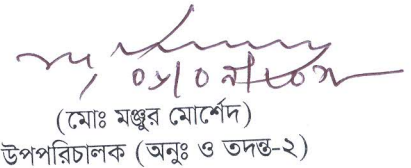 (মোঃ মঞ্জুর মোর্শেদ)
উপপরিচালক (অনুঃ ও তদন্ত-২)